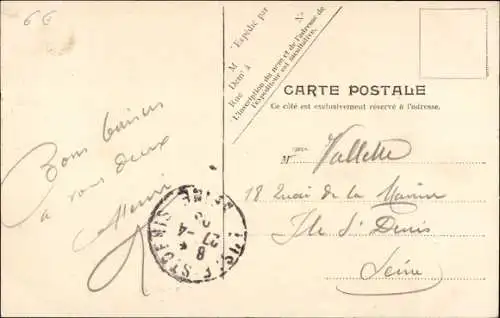 6€
Bons baisers
à vous deux
Henri
Expédié par
M
Demt à
Rue
N°
L'inscription du nom et de l'adresse de
l'expéditeur est facultative.
CARTE POSTALE
Ce côté est exclusivement réservé à l'adresse.
M Vallette
18 Quai de la Marine
Ile St Denis
Seine
ST DENIS
SEINE
8
27-4